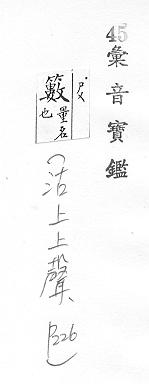 45
彙音寶鑑
籔量名也
沽上上聲
P326